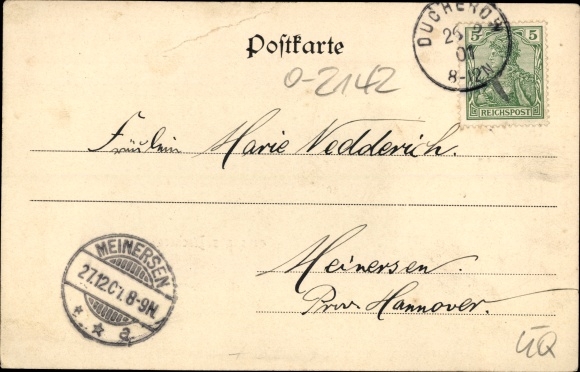 Postkarte
DUCHEROW
26
01
8-12N
5 5
REICHSPOST
0-2142
Fräulein Marie Vedderich.
MEINERSEN
27.12.01. 8-9N
* * a
Meinersen.
Prov. Hannover.
ÜQ